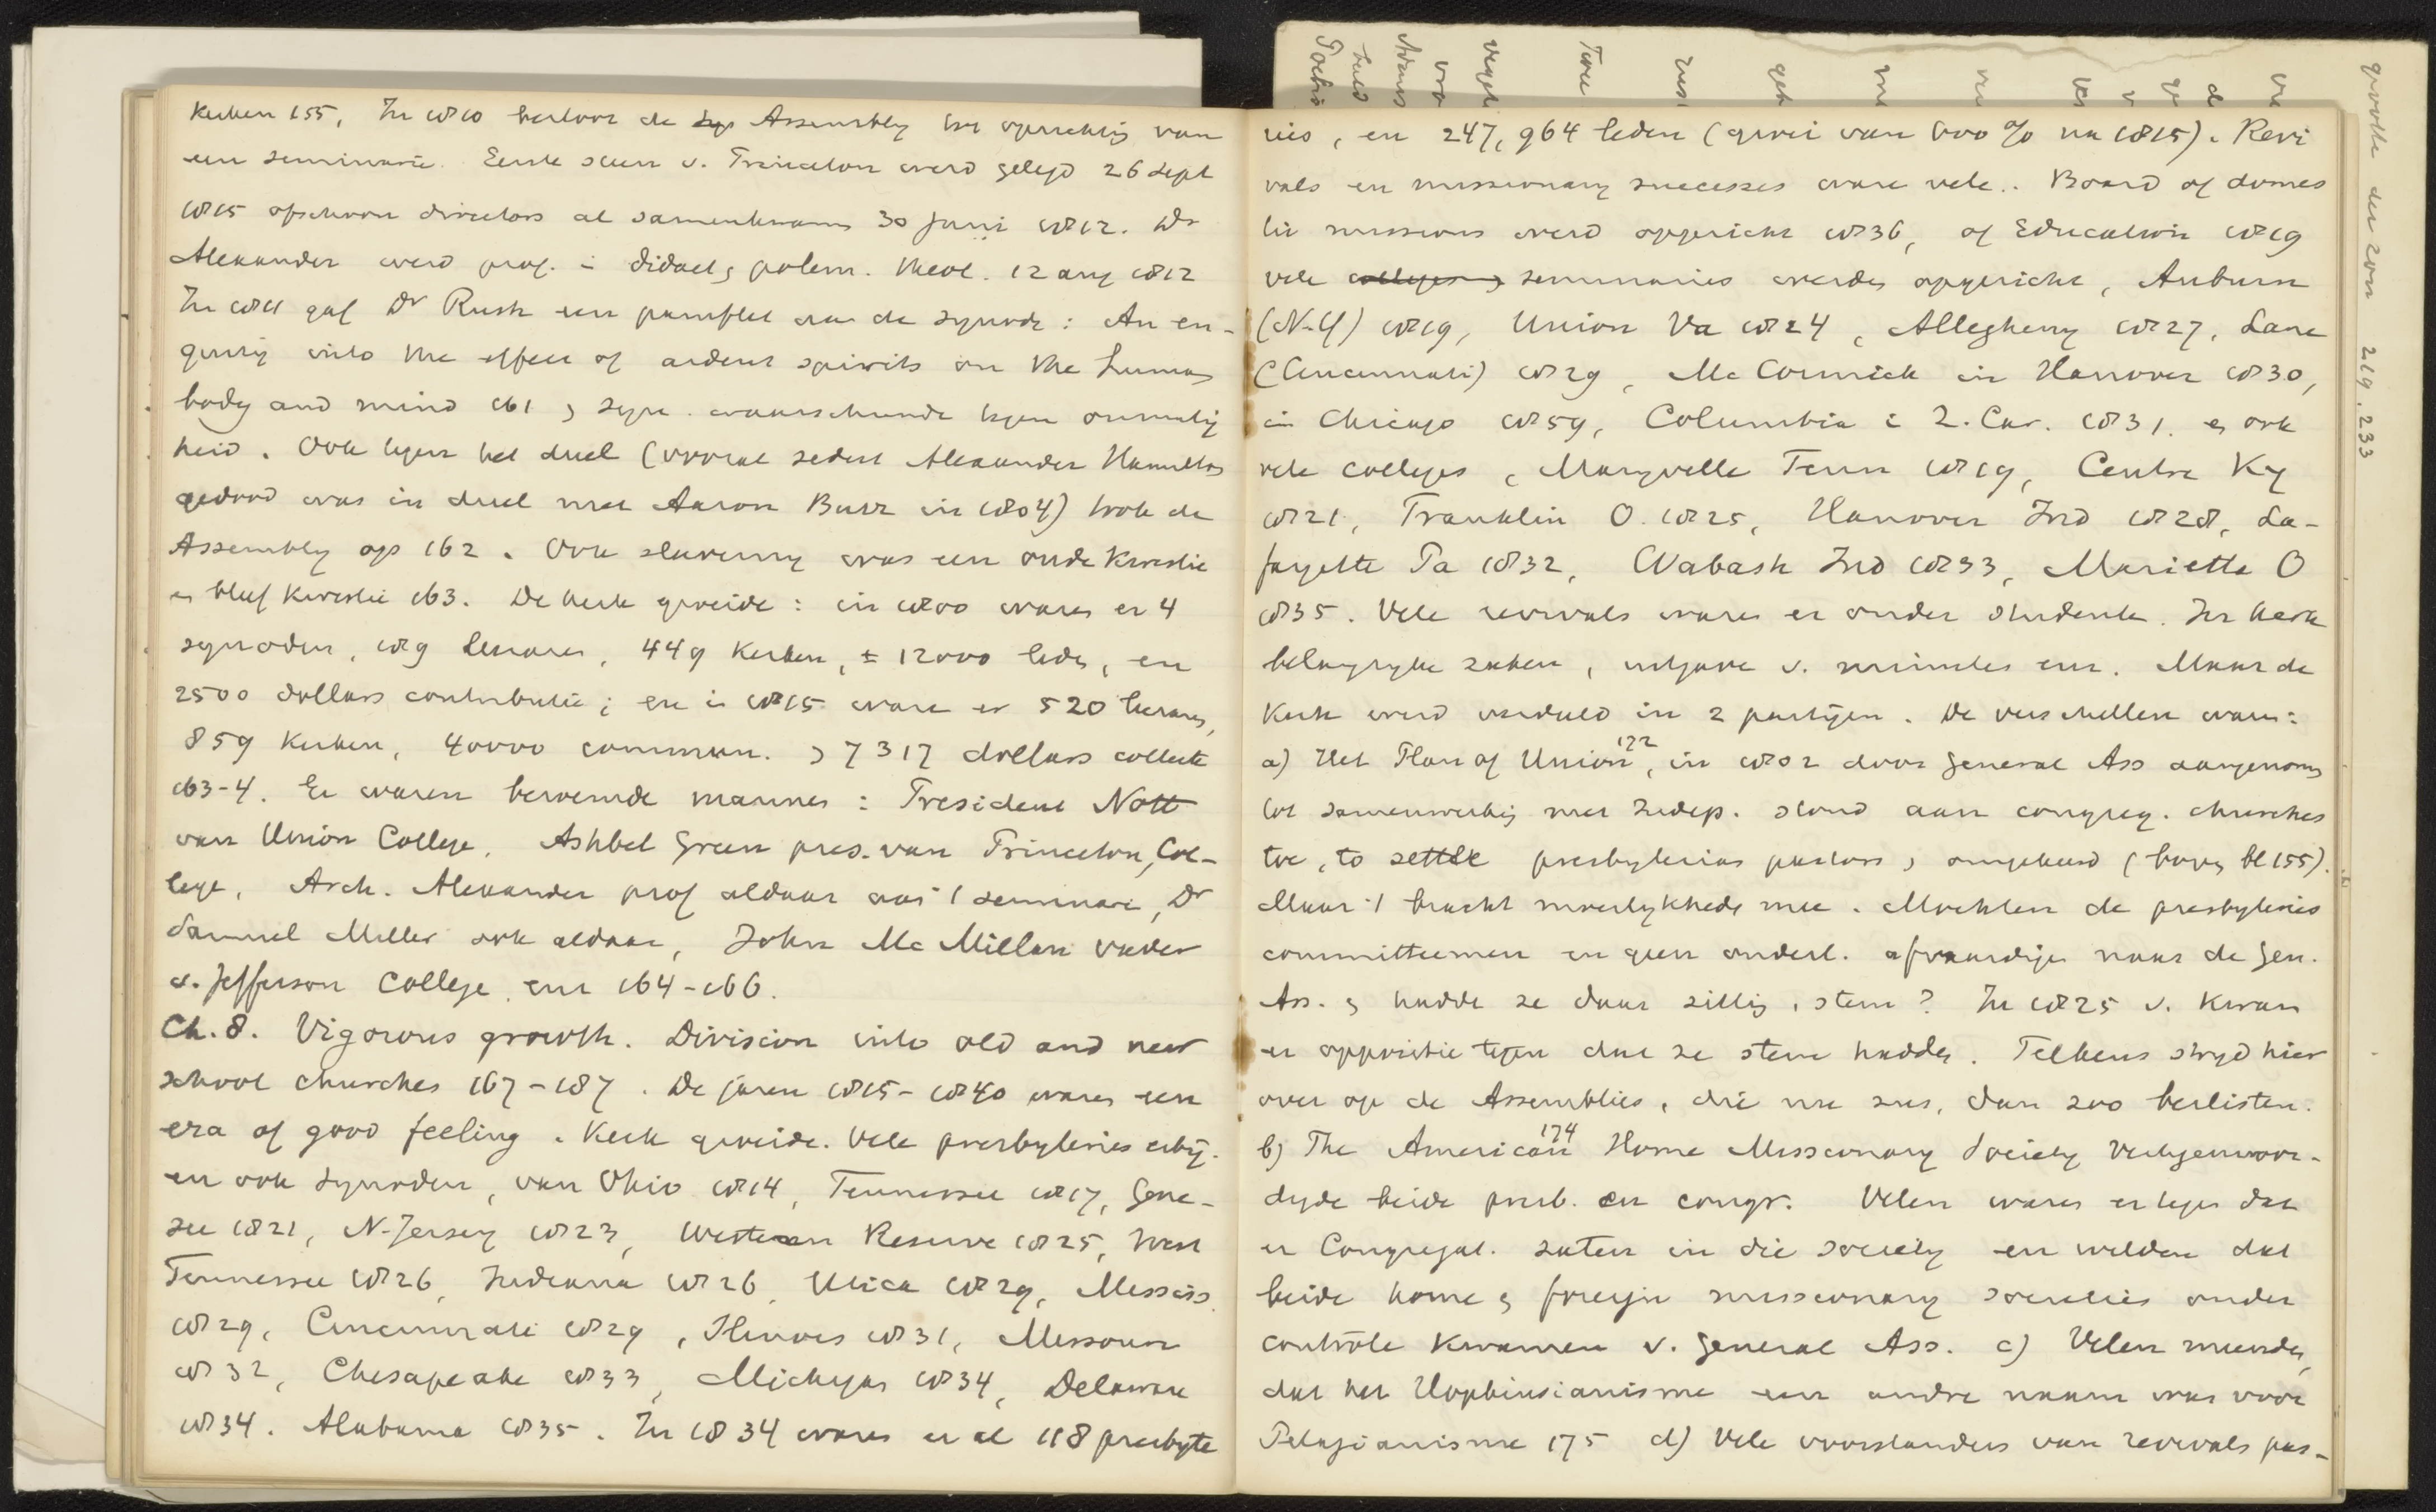 Kerken 155. In 1810 besloot de Assembly tot oprichting van
een seminarie. Eerste steen v. Princeton werd gelegd 26 Sept
1815 ofschoon directors al samenkwamen 30 Juni 1812. Dr
Alexander werd prof. i didact, polem. theol. 12 aug 1812
In 1811 gaf Dr Rush een pamflet aan de synode: An en-
quiry into the effect of ardent spirits on the human
body and mind 161 & syn. waarschuwde tegen onmatig
heid. Ook tegen het duel (vooral sedert Alexander Hamilton
gedood was in duel met Aaron Burr in 1804) trok de
Assembly op 162. Ook slaverny was een oude kwestie
en bleef kwestie 163. De kerk groeide: in 1800 waren er 4
synoden, 189 leeraren, 449 Kerken, ± 12000 leden, en
2500 dollars contributie; en i 1815 waren er 520 leeraren,
859 Kerken, 40000 commun. & 7317 dollars collecte
163-4. Er waren beroemde mannen: President Nott
van Union College, Ashbel Green pres. van Princeton, Col-
lege, Arch. Alexander prof aldaar aan 't seminarie, Dr
Samuel Miller ook aldaar, John Mc Millan vader
v. Jefferson College enz 164-166.
Ch. 8. Vigorous growth. Division into old and new
school churches 167-187. De jaren 1815-1840 waren een
era of good feeling. Kerk groeide. Vele presbyteries erbij.
en ook synoden, van Ohio 1814, Tennessee 1817, Gene-
see 1821, N-Jersey 1823, Western Reserve 1825, West
Tennessee 1826, Indiana 1826, Utica 1829, Mississ.
1829, Cincinnati 1829, Illinois 1831, Missouri
1832, Chesapeake 1833, Michigan 1834, Delaware
1834. Alabama 1835. In 1834 waren er al 118 presbyte
ries, en 247,964 leden (groei van 600 % na 1815). Revi
vals en missionary successes ware vele. Board of domes
tic missions werd opgericht 1836, of Education 1819
vele colleges & seminaries werden opgericht, Auburn
(N-Y) 1819, Union Va 1824, Allegheny 1827, Lane
(Cincinnati) 1829, Mc Cormick in Hanover 1830,
in Chicago 1859, Columbia i S. Car. 1831. en ook
vele colleges, Maryville Tenn 1819, Centre Ky
1821, Franklin O. 1825, Hanover Ind 1828, La-
fayette Pa 1832, Wabash Ind 1833, Marietta O
1835. Vele revivals waren er onder studenten. In kerk
belangryke zaken, uitgave v. minutes enz. Maar de
Kerk werd verdeeld in 2 partijen. De verschillen waren:
a) Het Plan of Union 172, in 1802 door General Ass aangenomen
tot samenwerking met Indep. stond aan congreg. churches
toe, to settle presbyterian pastors & omgekeerd (boven bl 155).
Maar 't bracht moeilykheden mee. Mochten de presbyteries
committeemen en geen ouderl. afvaardigen naar de Gen.
Ass. & hadden ze daar zitting, stem? In 1825 v. kwam
er oppositie tegen dat ze stem hadden. Telkens stryd hier
over op de Assemblies, die nu zus, dan zoo beslisten.
b) The American 174 Home Missionary Society vertegenwoor-
digde beide presb. en congr. Velen waren er tegen dat
er Congregat. zaten in die society en wilden dat
beide home & foreign missionary societies onder
contrôle kwamen v. General Ass. c) Velen meenden,
dat het Hopkinsianisme een andre naam was voor
Pelagianisme 175 d) Vele voorstanders van revivals pas-
grootte der zon 219, 233